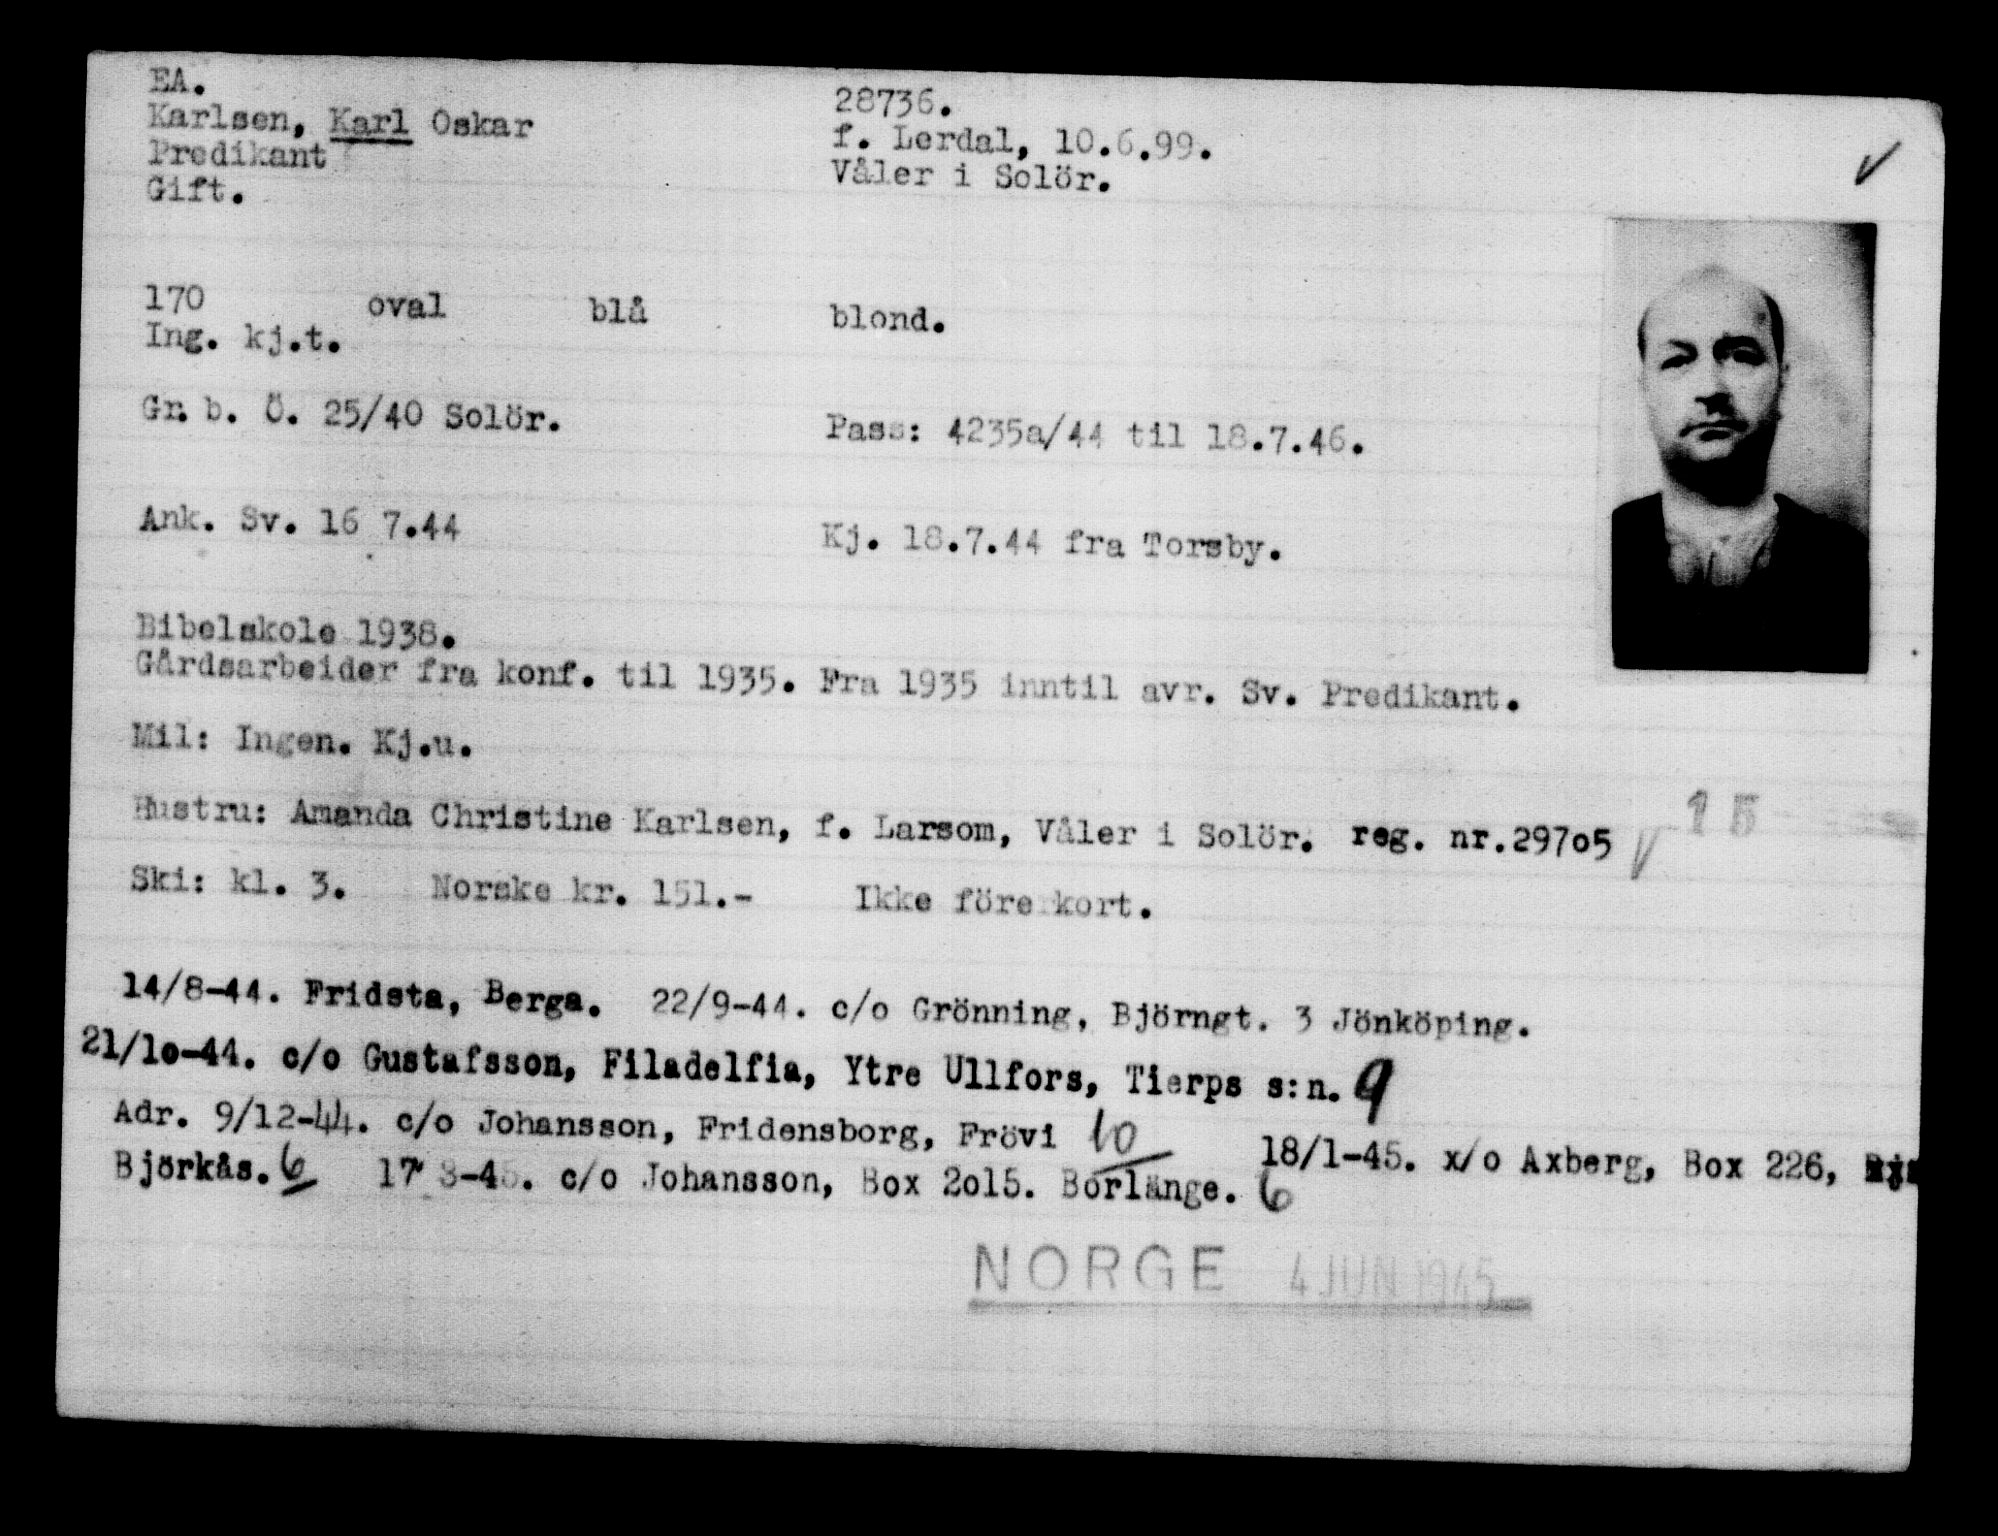 EA.
28736.
Karlsen, Karl Oskar
f. Lerdal, 10.6.99.
Predikant
Våler i Solör.
Gift.
170 oval blå blond.
Ing. kj.t.
Gr. b. Ö. 25/40 Solör.
Pass: 4235a/44 til 18.7.46.
Ank. Sv. 16 7.44
Kj. 18.7.44 fra Torsby.
Bibelskole 1938.
Gårdsarbeider fra konf. til 1935. Fra 1935 inntil avr. Sv. Predikant.
Mil: Ingen. Kj.u.
Hustru: Amanda Christine Karlsen, f. Larsom, Våler i Solör. reg. nr.297o5
15
Ski: kl. 3. Norske kr. 151.- Ikke förerkort.
14/8-44. Fridsta, Berga. 22/9-44. c/o Grönning, Björngt. 3 Jönköping.
21/1o-44. c/o Gustafsson, Filadelfia, Ytre Ullfors, Tierps s:n. 9
Adr. 9/12-44. c/o Johansson, Fridensborg, Frövi 10
18/1-45. x/o Axberg, Box 226,
Björkås. 6 17 3-45. c/o Johansson, Box 2o15. Borlänge. 6
NORGE 4 JUN 1945